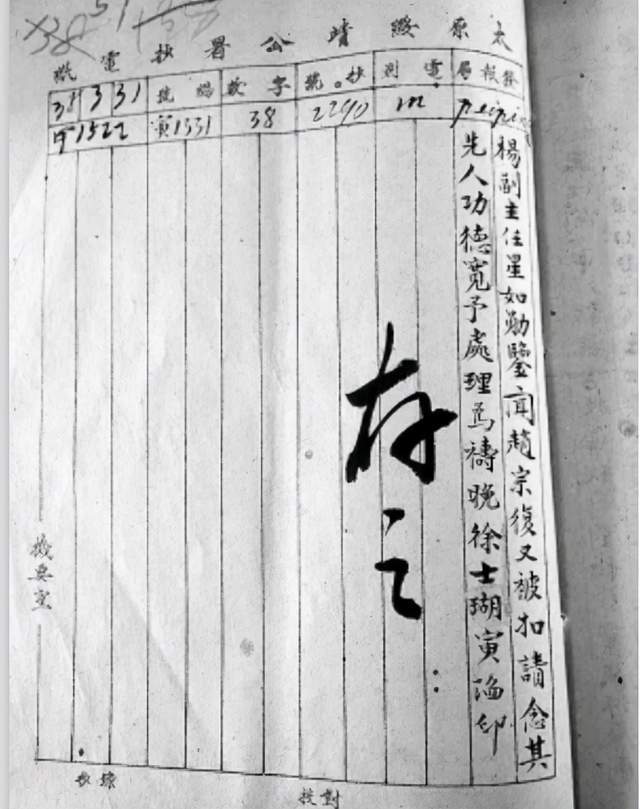 太原綏靖公署抄電紙
發報局 peiping
電別 m
抄號 2290
字數 38
號碼 寅1331
31/3 31
1522
楊副主任星如勛鑒聞趙宗復又被扣請念其
先人功德寬予處理為禱晚徐士瑚寅
印
存之
機要室
對校